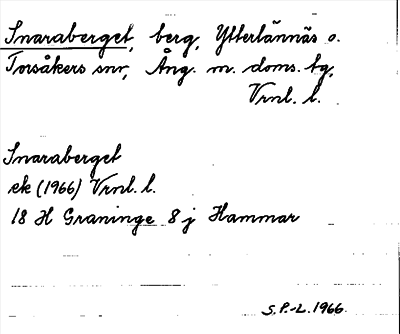 Snaraberget, berg, Ytterlännäs o.
Torsåkers snr, Ång. m. doms. tg,
Vrnl. l.
Snaraberget
ek (1966) Vrnl. l.
18 H Graninge 8 j Hammar
S.P.-L. 1966.